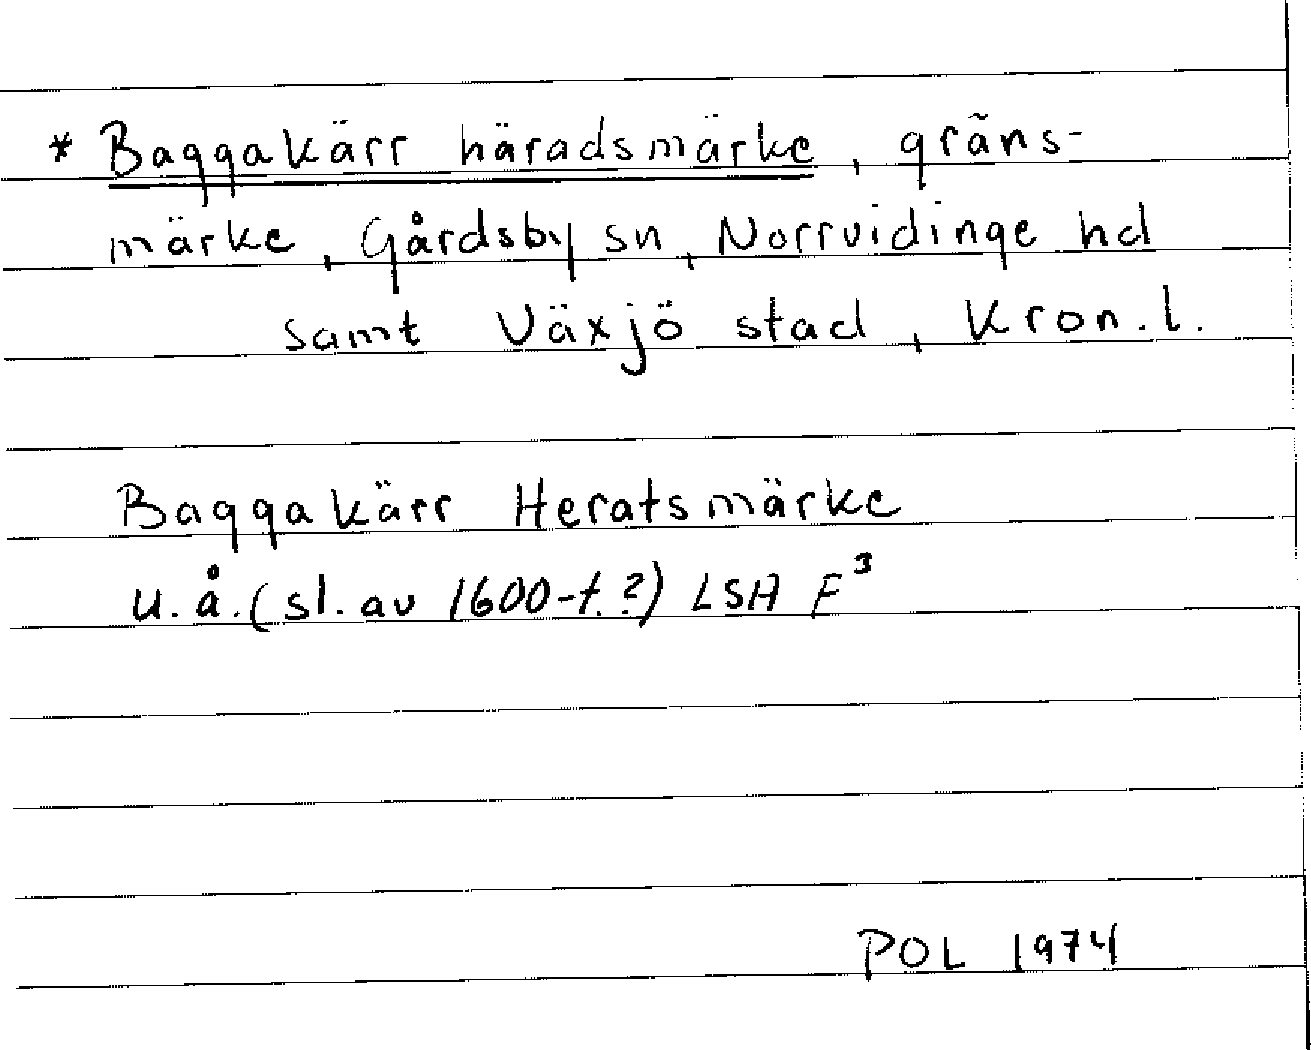 * Baggakärr häradsmärke, gräns-
märke, Gårdsby sn, Norrvidinge hd
samt Växjö stad, Kron.l.
Baggakärr Heratsmärke
u.å. (sl. av 1600-t.?) LSA F³
POL 1974